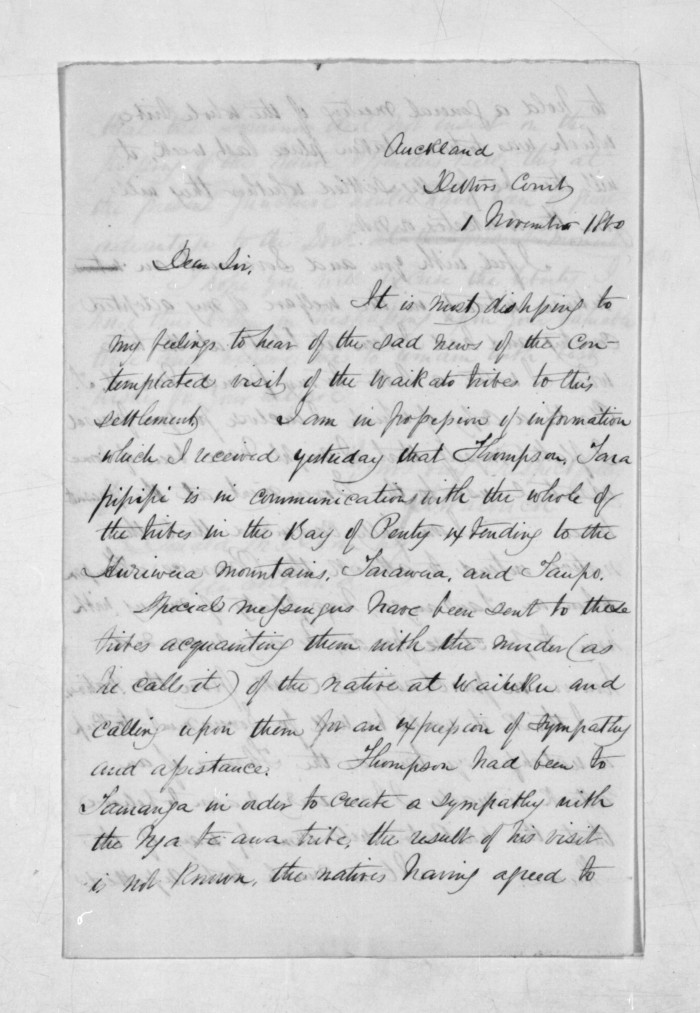 Auckland
Debtors Court
1 November 1860
Dear Sir,
It is most distressing to
my feelings to hear of the sad news of the con-
templated visit of the Waikato tribes to this
settlement I am in possession of information
which I received yesterday that Thompson, Tara
pipipi is in communication with the whole of
the tribes in the Bay of Penty extending to the
Huriwera mountains, Tarawera, and Taupo.
Special messengers have been sent to these
tribes acquainting them with the murder (as
he calls it) of the native at Waiuku and
calling upon them for an expression of sympathy
and assistance. Thompson had been to
Tauranga in order to create a sympathy with
the Nga te awa tribe, the result of his visit
is not known, the natives having agreed to